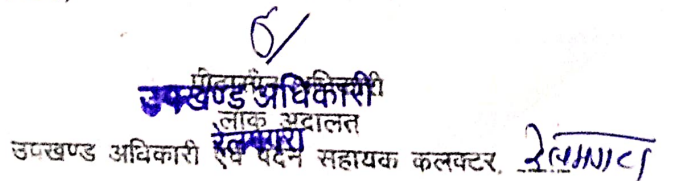 पीठासीन अधिकारी
उपखण्ड अधिकारी
लोक अदालत
रेलमगरा
उपखण्ड अधिकारी एवं पदेन सहायक कलक्टर, रेलमगरा